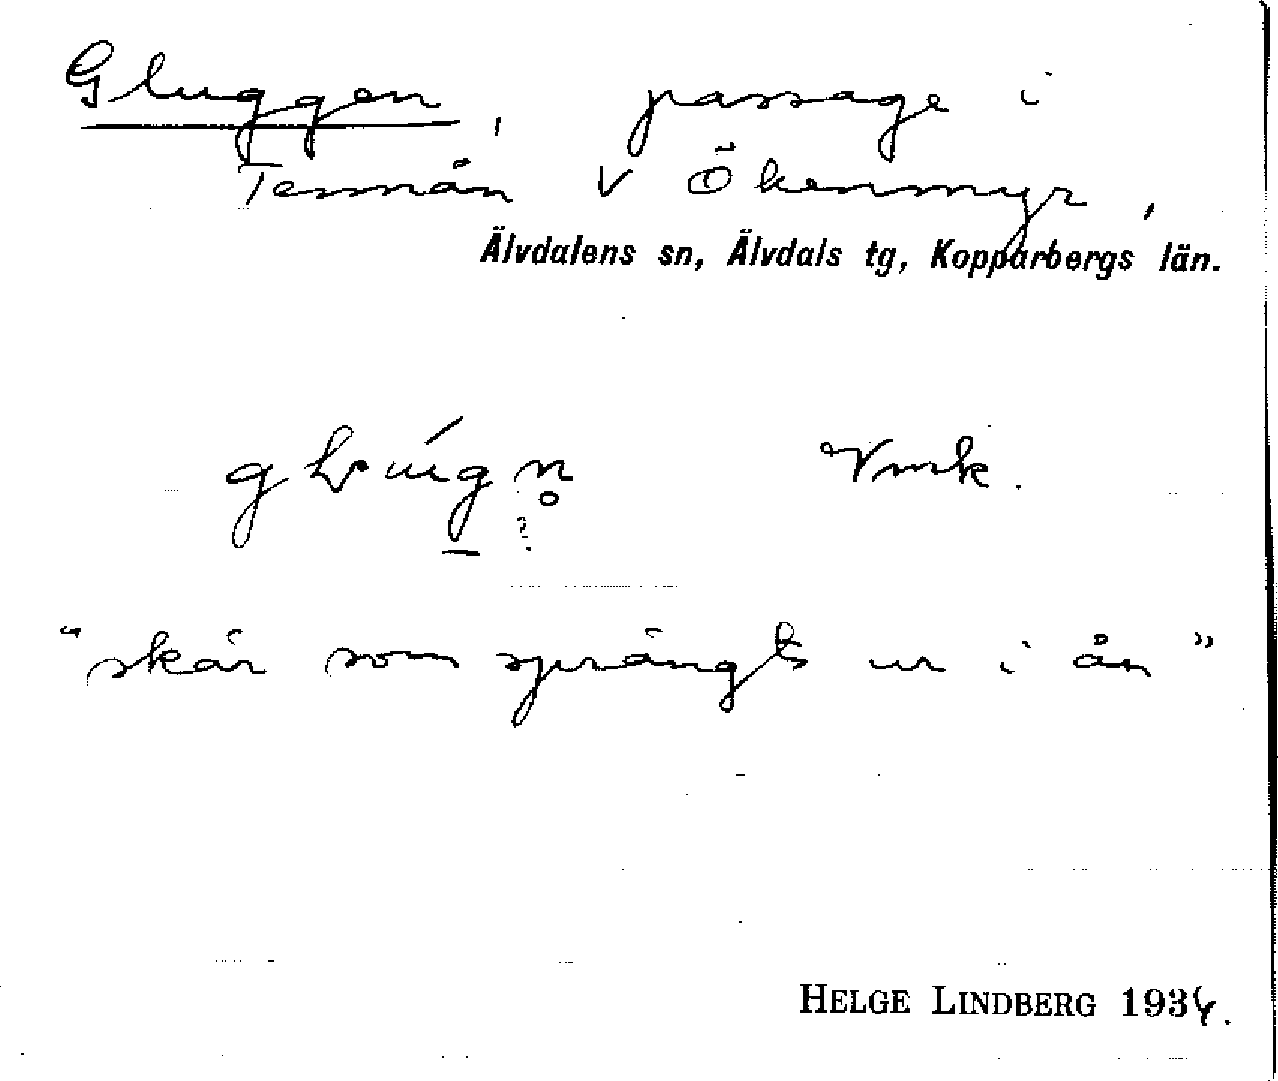 Gluggen, passage i
Tennån V Ökenmyr,
Älvdalens sn, Älvdals tg, Kopparbergs län.
Vmk.
"skär som sprängts ur i ån"
HELGE LINDBERG 1934.